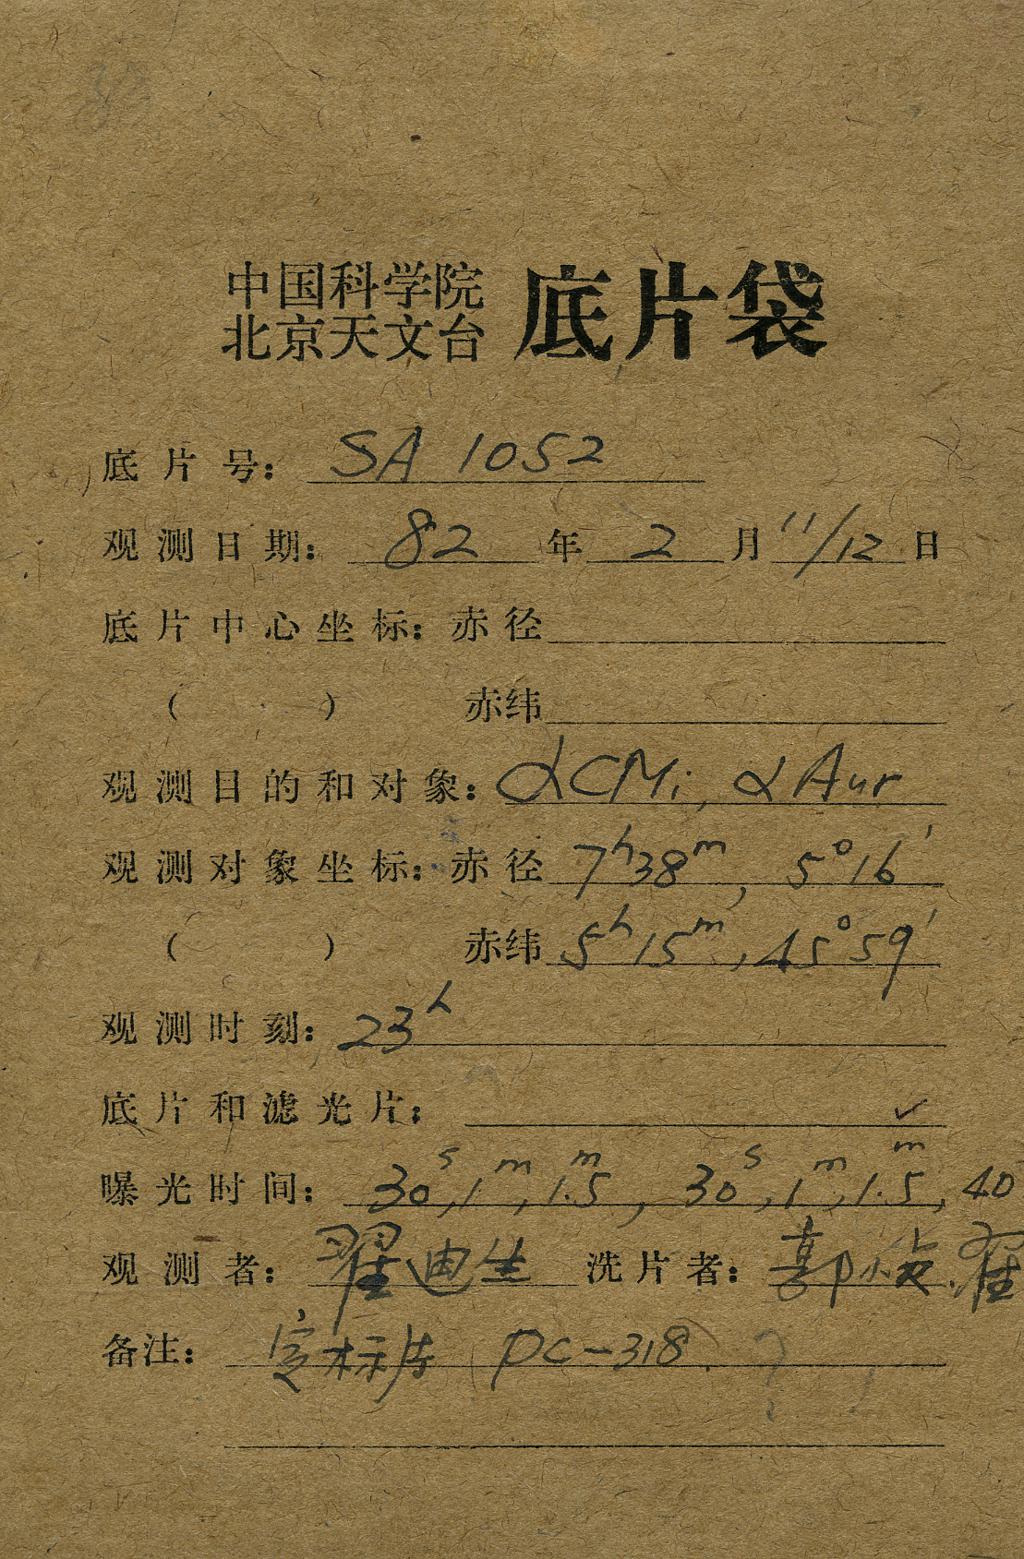 中国科学院
北京天文台
底片袋
底片号: SA 1052
观测日期: 82 年 2 月 11/12 日
底片中心坐标: 赤径
( ) 赤纬
观测目的和对象: αCMi, αAur
观测对象坐标: 赤径 7ʰ38ᵐ, 5°16′
( ) 赤纬 5ʰ15ᵐ, 45°59′
观测时刻: 23ʰ
底片和滤光片: ✓
曝光时间: 30ˢ, 1ᵐ, 1.5ᵐ, 30ˢ, 1ᵐ, 1.5ᵐ, 40
观测者: 翟迪生 洗片者: 郭
备注: 定标片 PC-318.